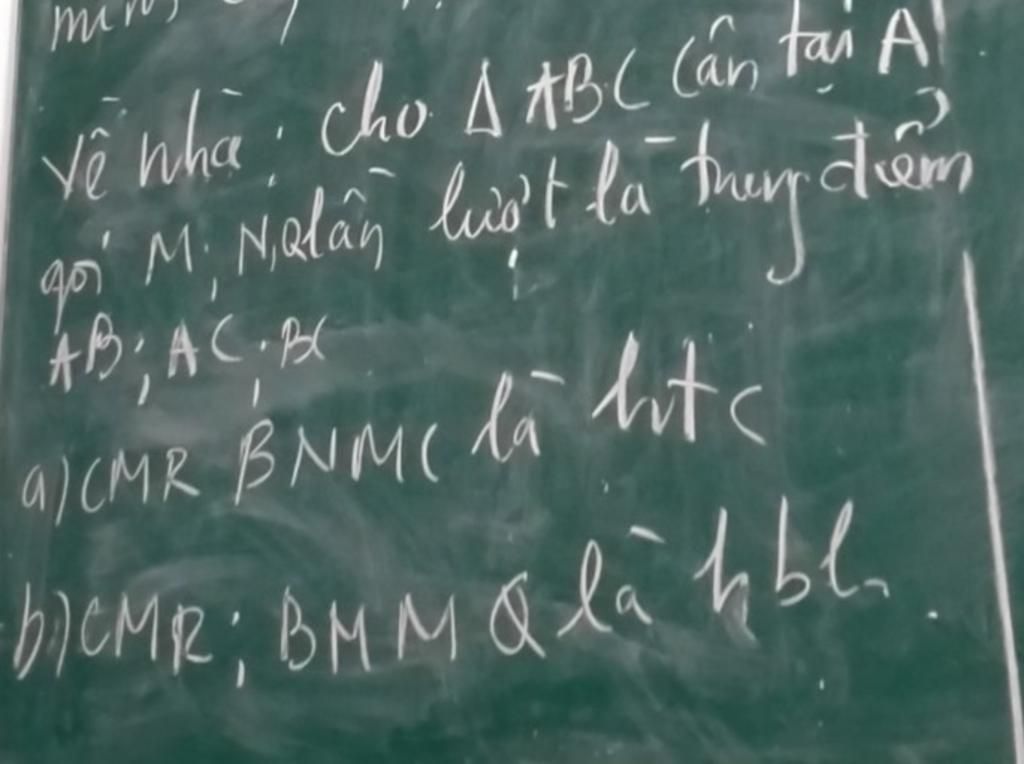 Về nhà: Cho Δ ABC Cân tại A
gọi M; N,Q lần lượt là trung điểm
AB; AC; BC
a) CMR BNMC là htc
b) CMR; BMMQ là hbh